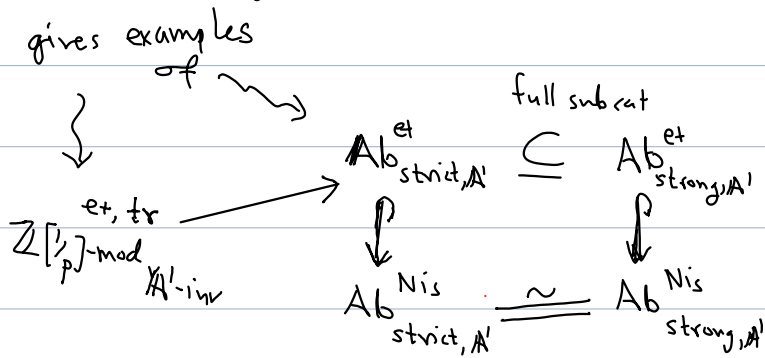 gives examples
of
full subcat
Ab^et_strict,A¹ ⊆ Ab^et_strong,A¹
Z[1/p]-mod^et,tr_A¹-inv
Ab^Nis_strict,A¹ ≃ Ab^Nis_strong,A¹